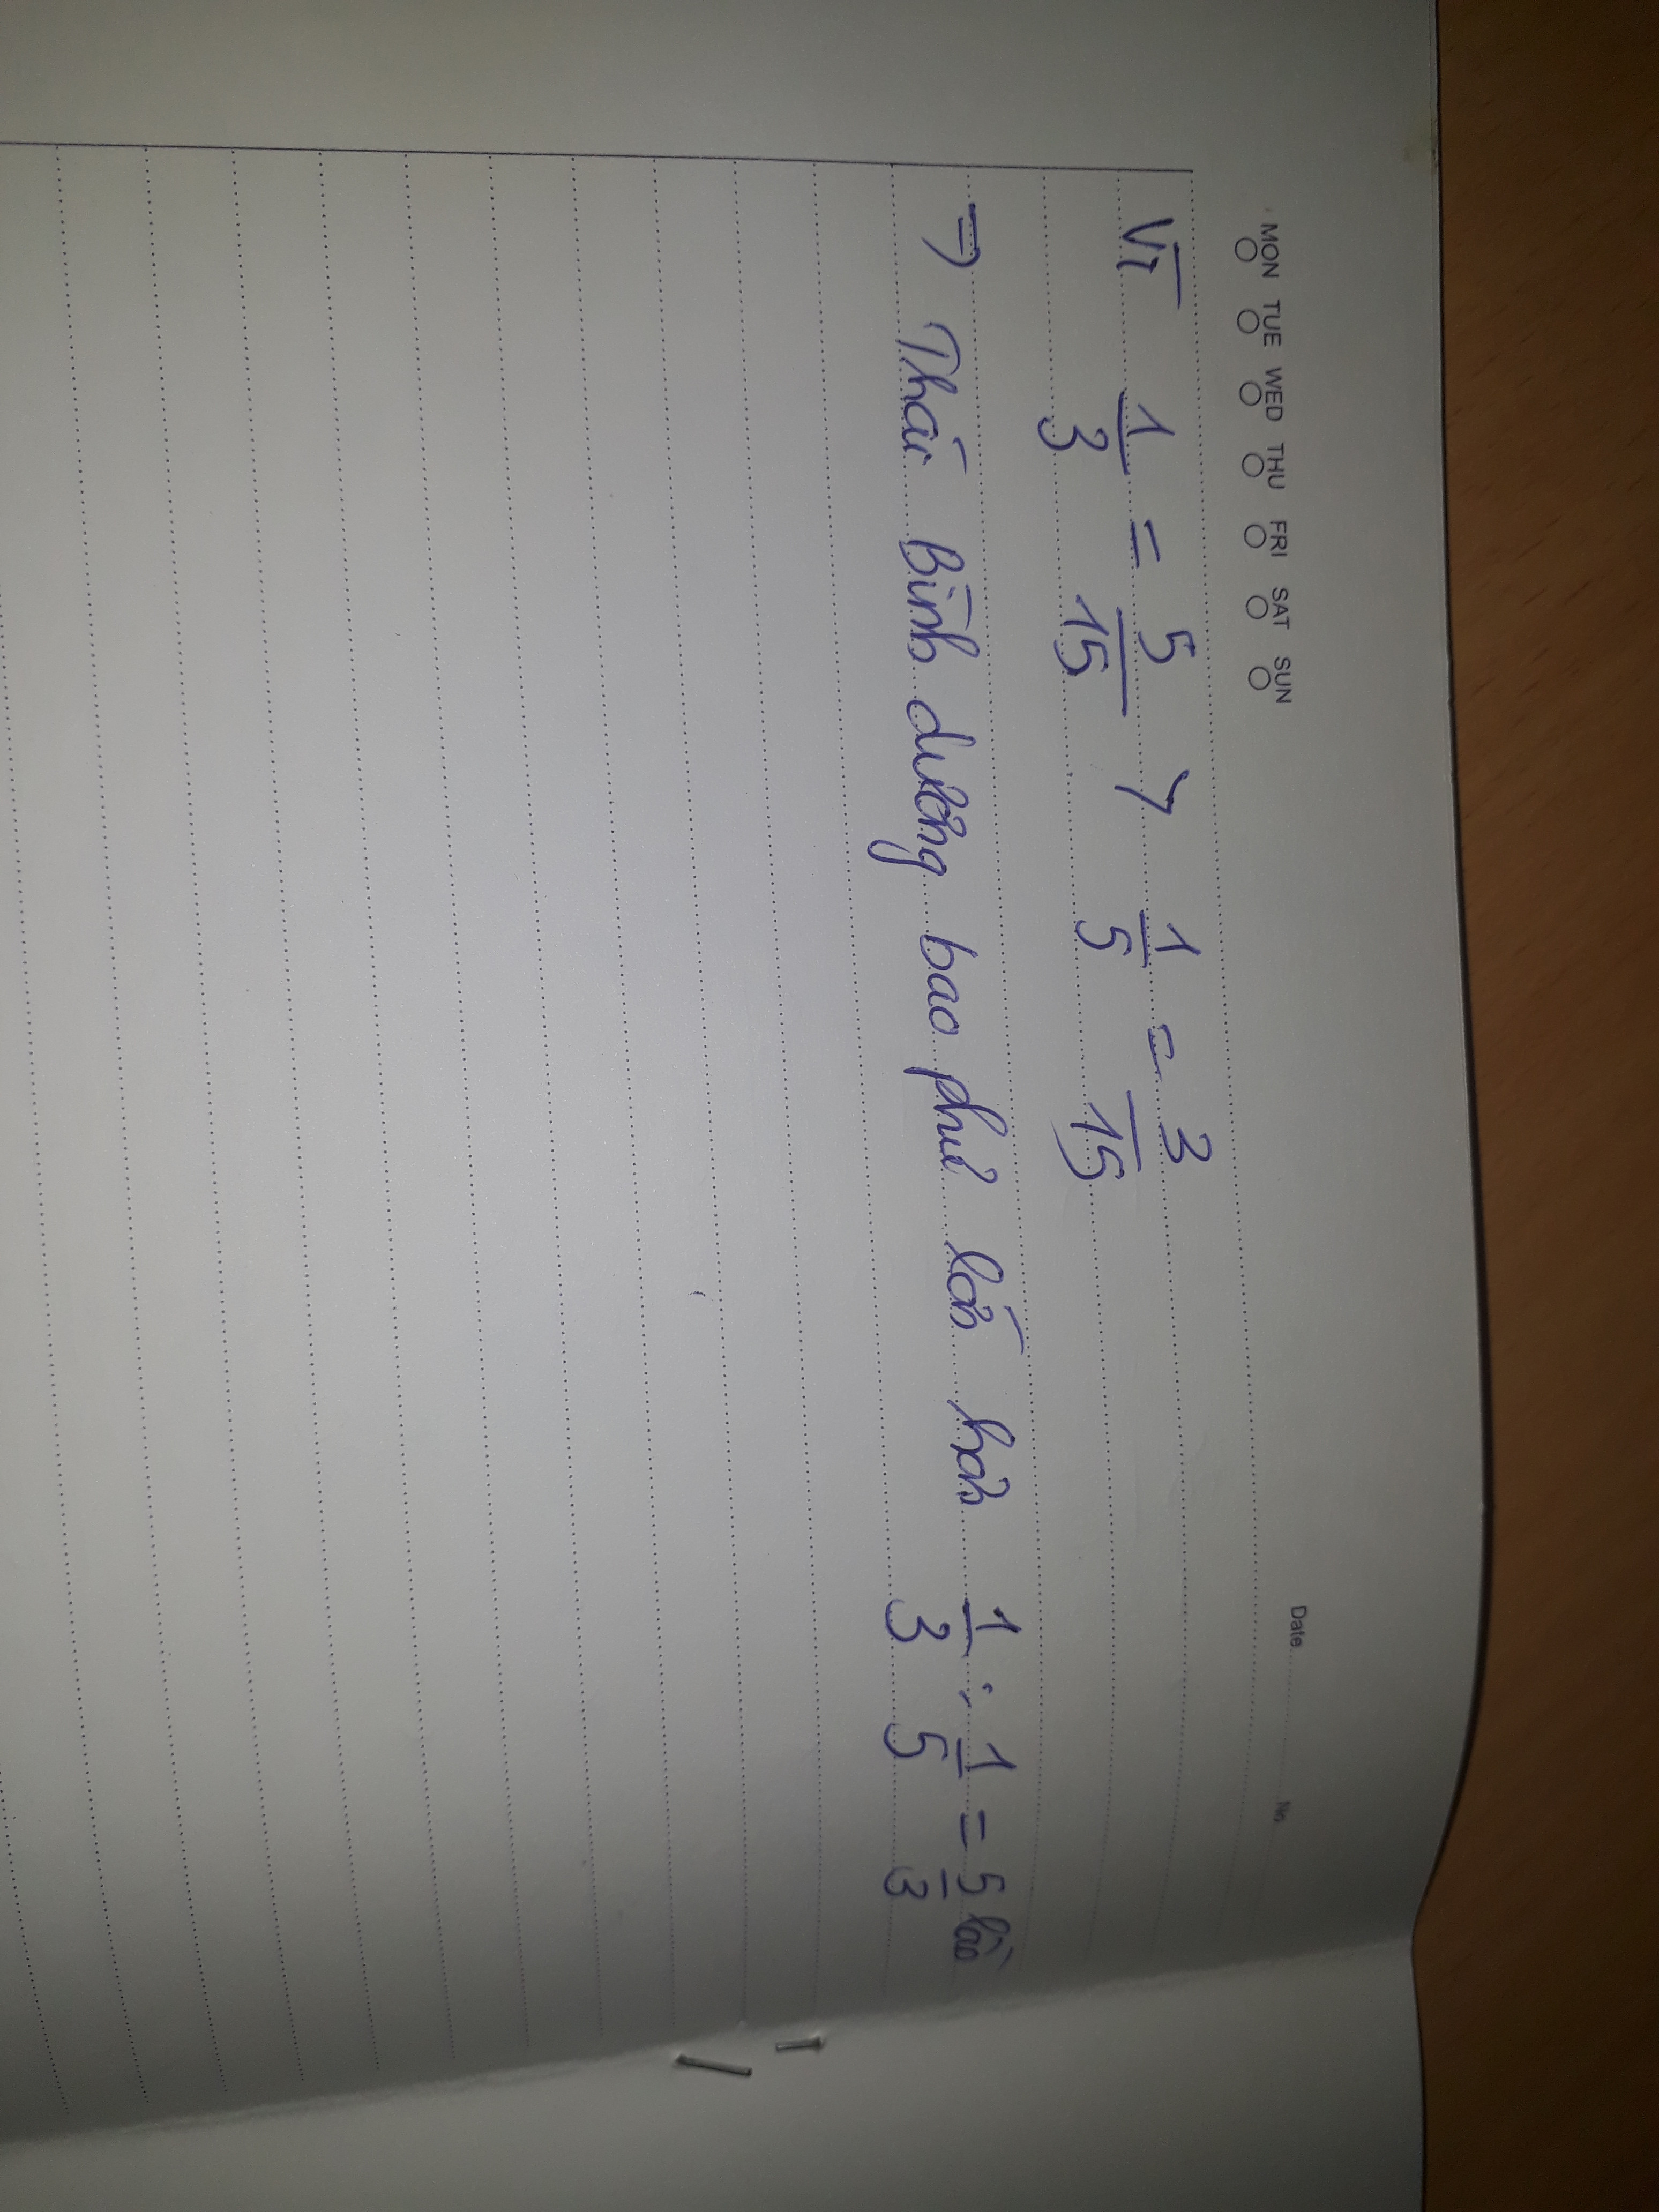 MON TUE WED THU FRI SAT SUN
Date No.
Vì 1/3 = 5/15 > 1/5 = 3/15
=> Thái Bình dương bao phủ lớn hơn 1/3 : 1/5 = 5/3 lần